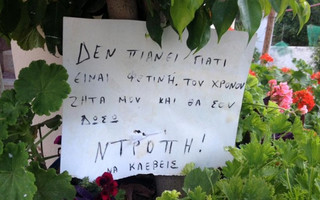 ΔΕΝ ΠΙΑΝΕΙ ΓΙΑΤΙ
ΕΙΝΑΙ ΦΩΤΙΝΗ. ΤΟΥ ΧΡΟΝΟΥ
ΖΗΤΑ ΜΟΥ ΚΑΙ ΘΑ ΣΟΥ
ΔΩΣΩ
ΝΤΡΟΠΗ!
ΝΑ ΚΛΕΒΕΙΣ